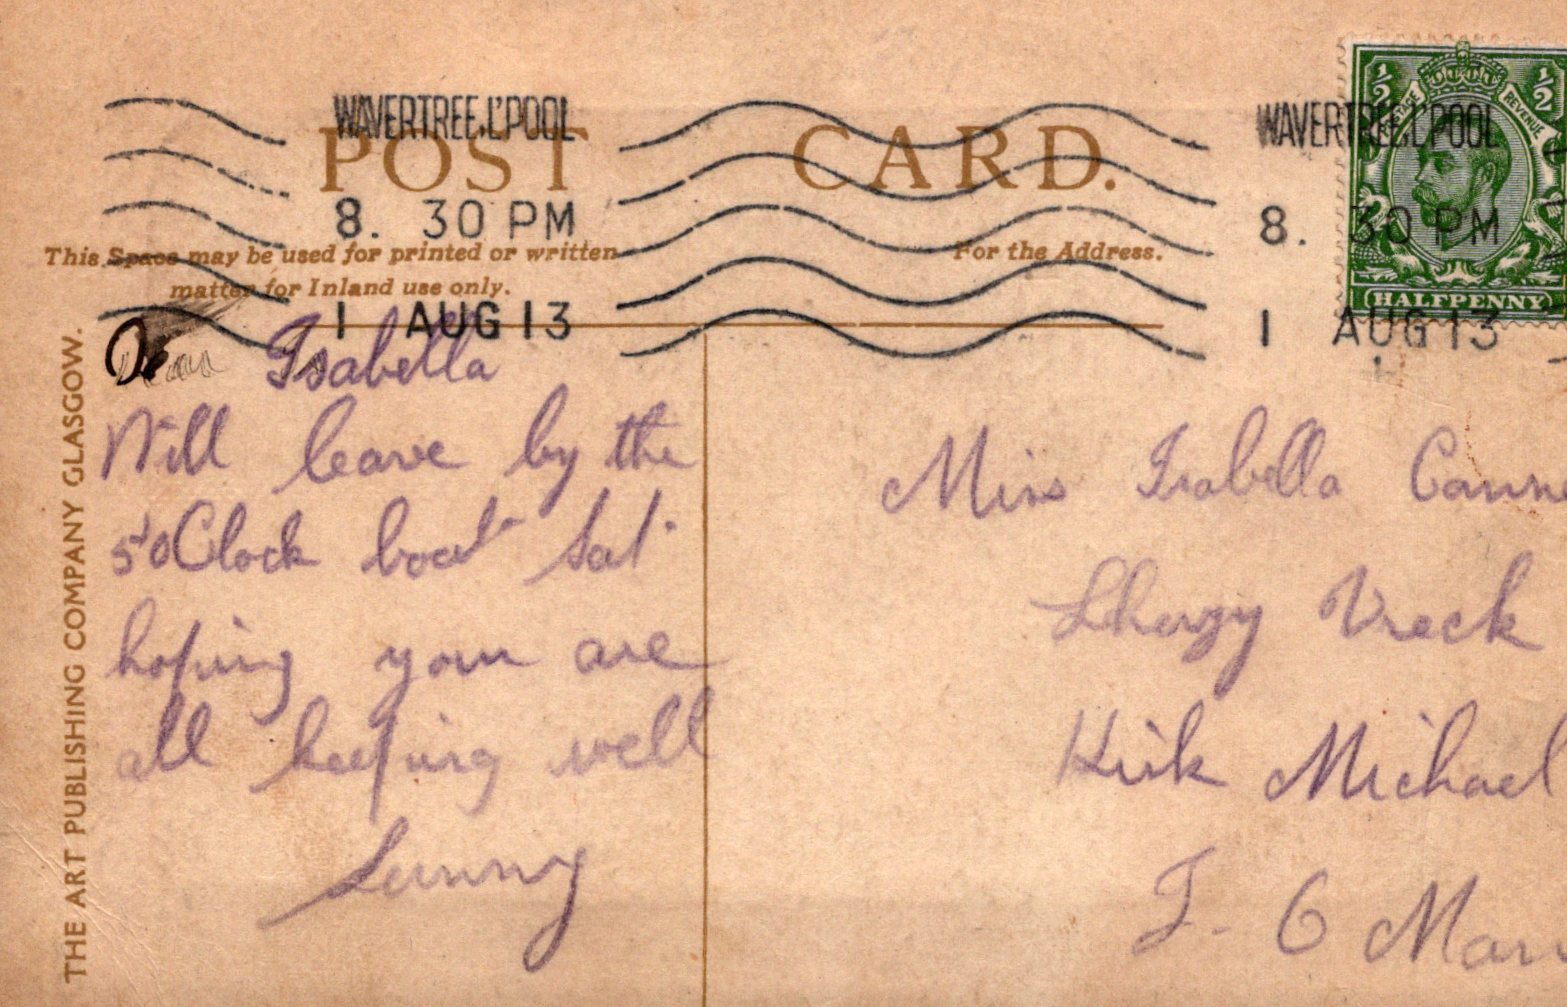 WAVERTREE, L'POOL
8. 30 PM
1 AUG 13
WAVERTREE, L'POOL
8. 30 PM
1 AUG 13
POST CARD.
POSTAGE REVENUE
½ ½
HALFPENNY
This Space may be used for printed or written
matter for Inland use only.
For the Address.
THE ART PUBLISHING COMPANY GLASGOW.
Dear Isabella
Will leave by the
5 'oClock boat Sat.
hoping you are
all keeping well
Miss Isabella Cann
Vreck
Kirk Michael
I. O Man